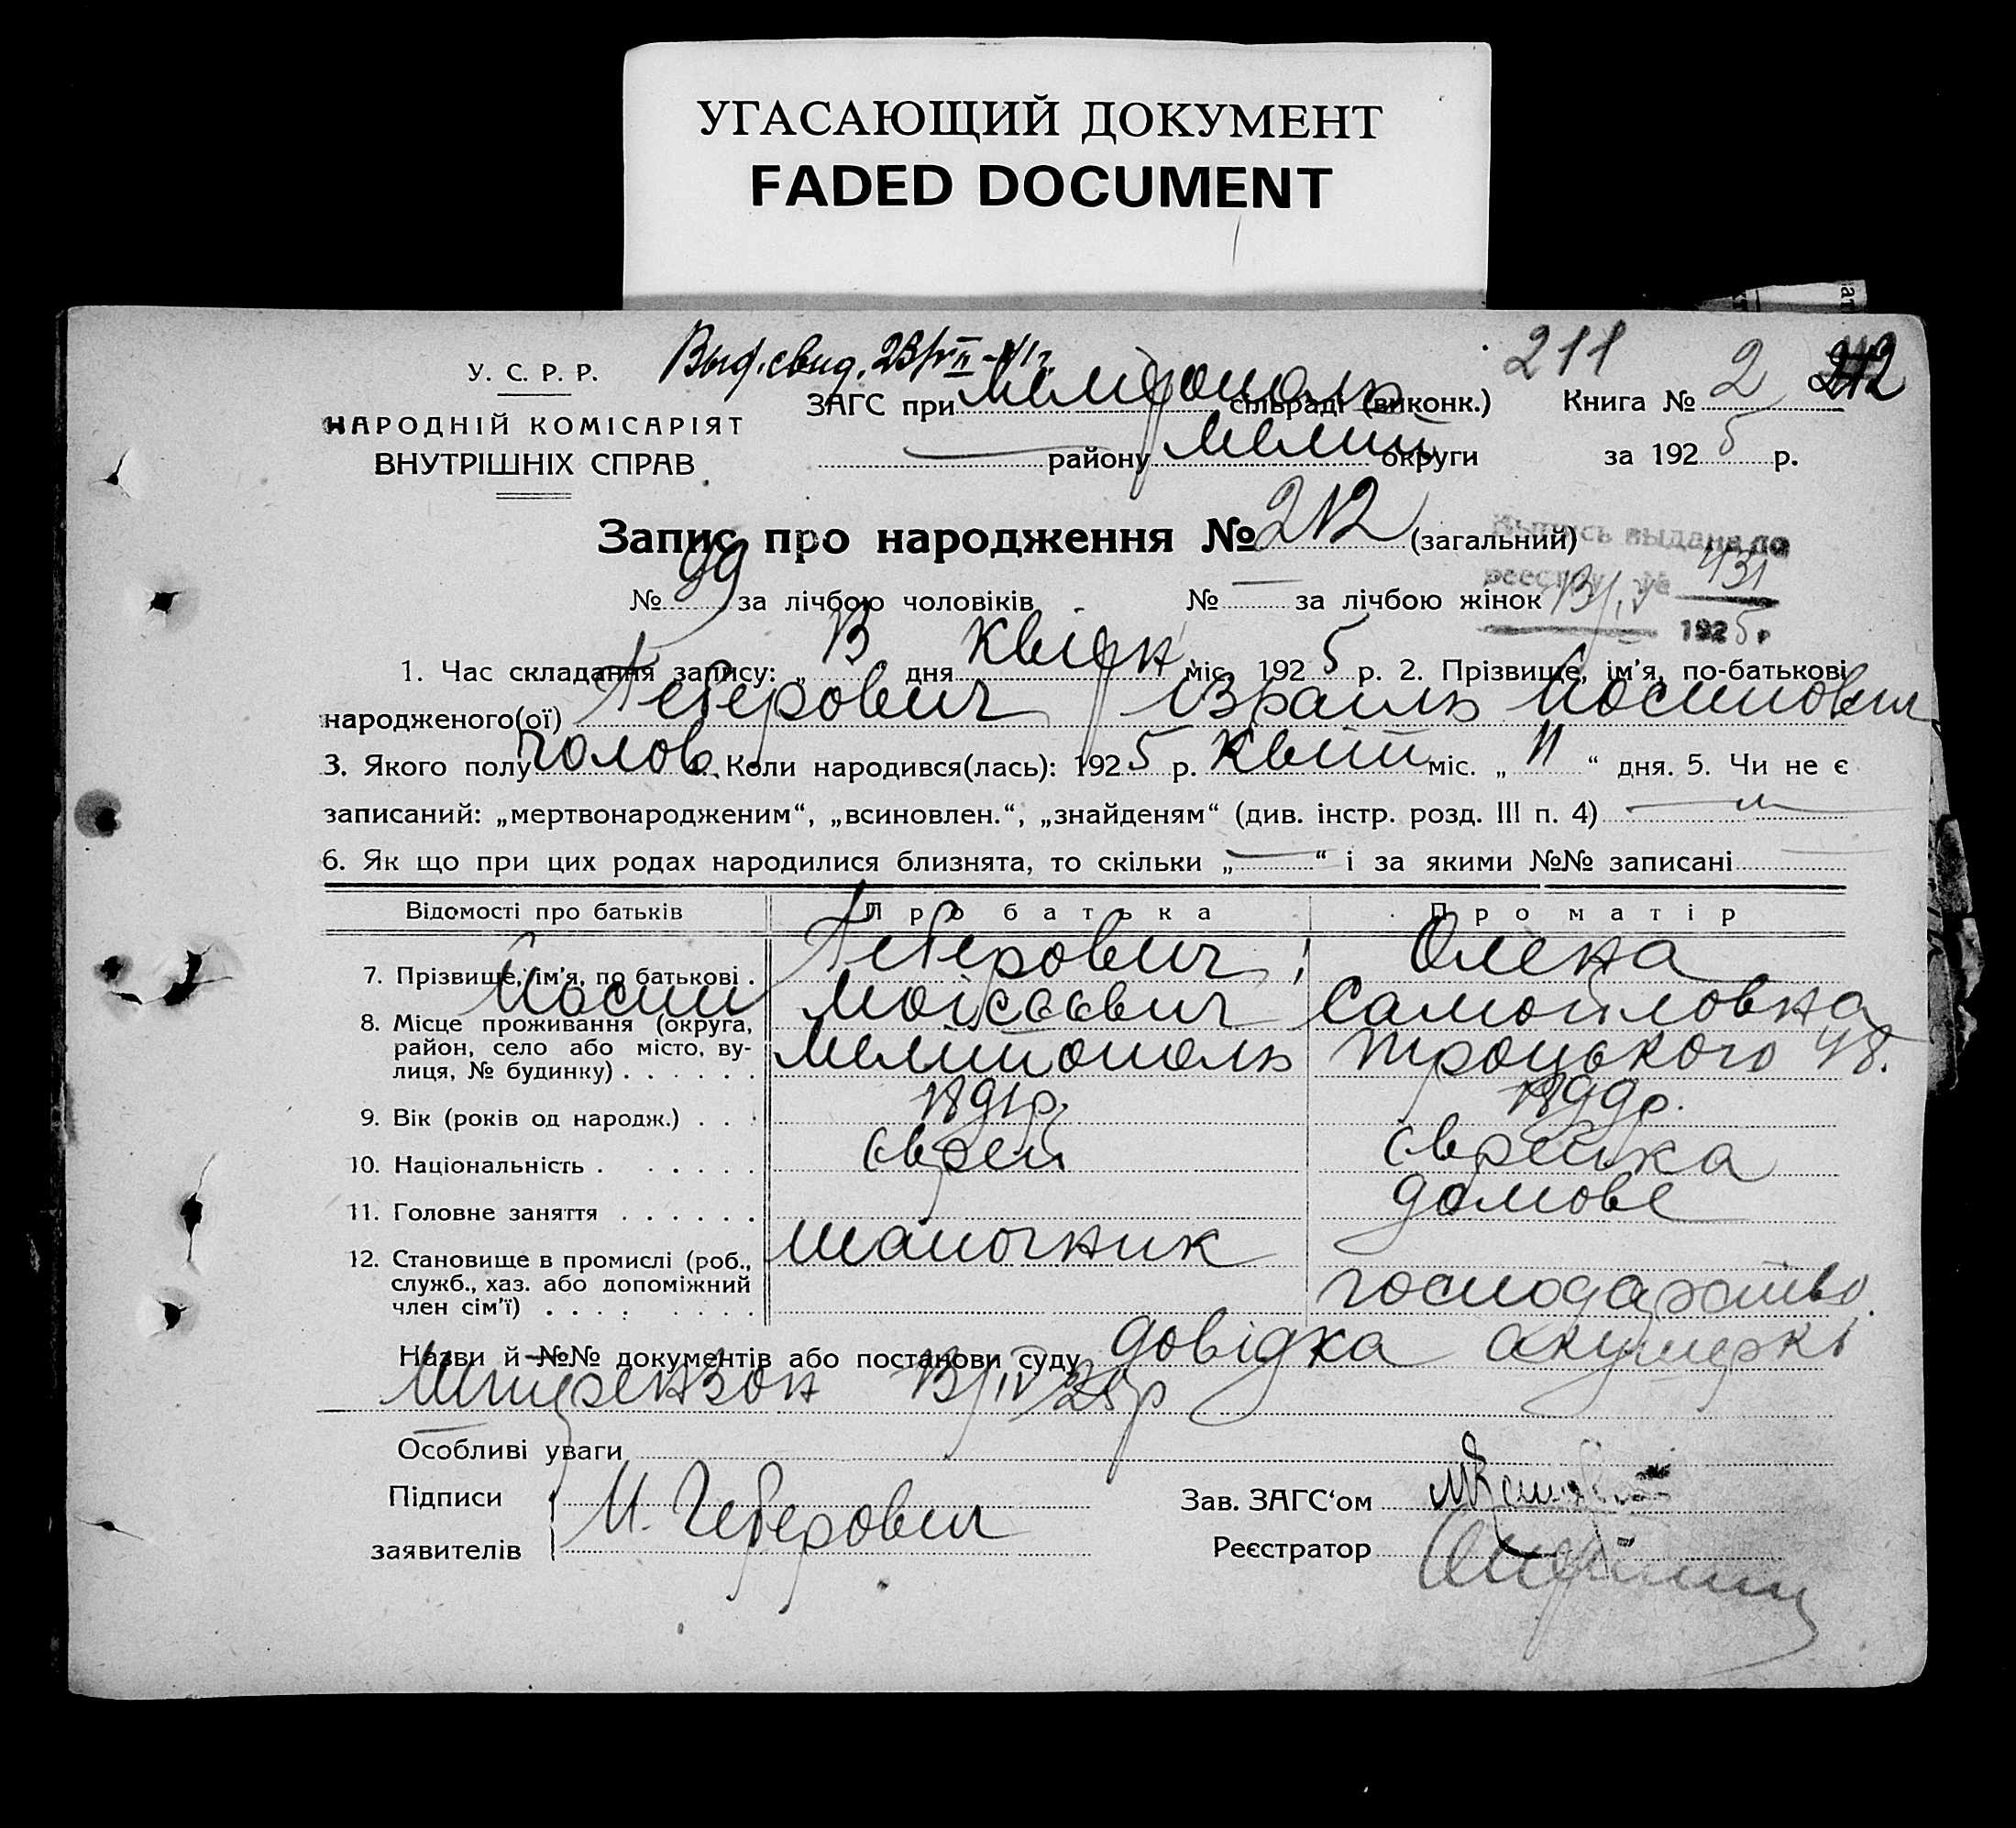 УГАСАЮЩИЙ ДОКУМЕНТ
FADED DOCUMENT
Выд. свид. 23/VII-41г.
211
212
У. С. Р. Р.
НАРОДНІЙ КОМІСАРІЯТ
ВНУТРІШНІХ СПРАВ
ЗАГС при Мелітополь сільраді (виконк.)
Книга № 2
району Меліт округи
за 1925 р.
Запис про народження № 212 (загальний)
Выпись выдана по
реестру № 431
13/IV 1925 г
№ 99 за лічбою чоловіків № — за лічбою жінок
1. Час складання запису: „13 дня Квітн міс. 1925 р. 2. Прізвище, ім’я, по-батькові
народженого(ої) Геберович Ізраиль Йосипович
3. Якого полу чолов. Коли народився(лась): 1925 р. Квіт міс. „11“ дня. 5. Чи не є
записаний: „мертвонародженим“, „всиновлен.“, „знайденям“ (див. інстр. розд. III п. 4)
6. Як що при цих родах народилися близнята, то скільки „—“ і за якими №№ записані —
Відомості про батьків Про батька Про матір
7. Прізвище, ім’я, по батькові . Геберович Олена
Йосип Моісєєвич Самойловна
8. Місце проживання (округа,
район, село або місто, ву-
лиця, № будинку) . . . . . . Мелитополь Троцького 48.
9. Вік (років од народж.) . . . 1891р. 1899р.
10. Національність . . . . . . Єврей Єврейка
11. Головне заняття . . . . . . шапочник домове
12. Становище в промислі (роб.,
служб., хаз. або допоміжний
член сім’ї) . . . . . . . . господарство.
Назви й №№ документів або постанови суду довідка акушерки
13/IV 25р
Особливі уваги
Підписи
заявителів
И. Геберович
Зав. ЗАГС‘ом
Реєстратор